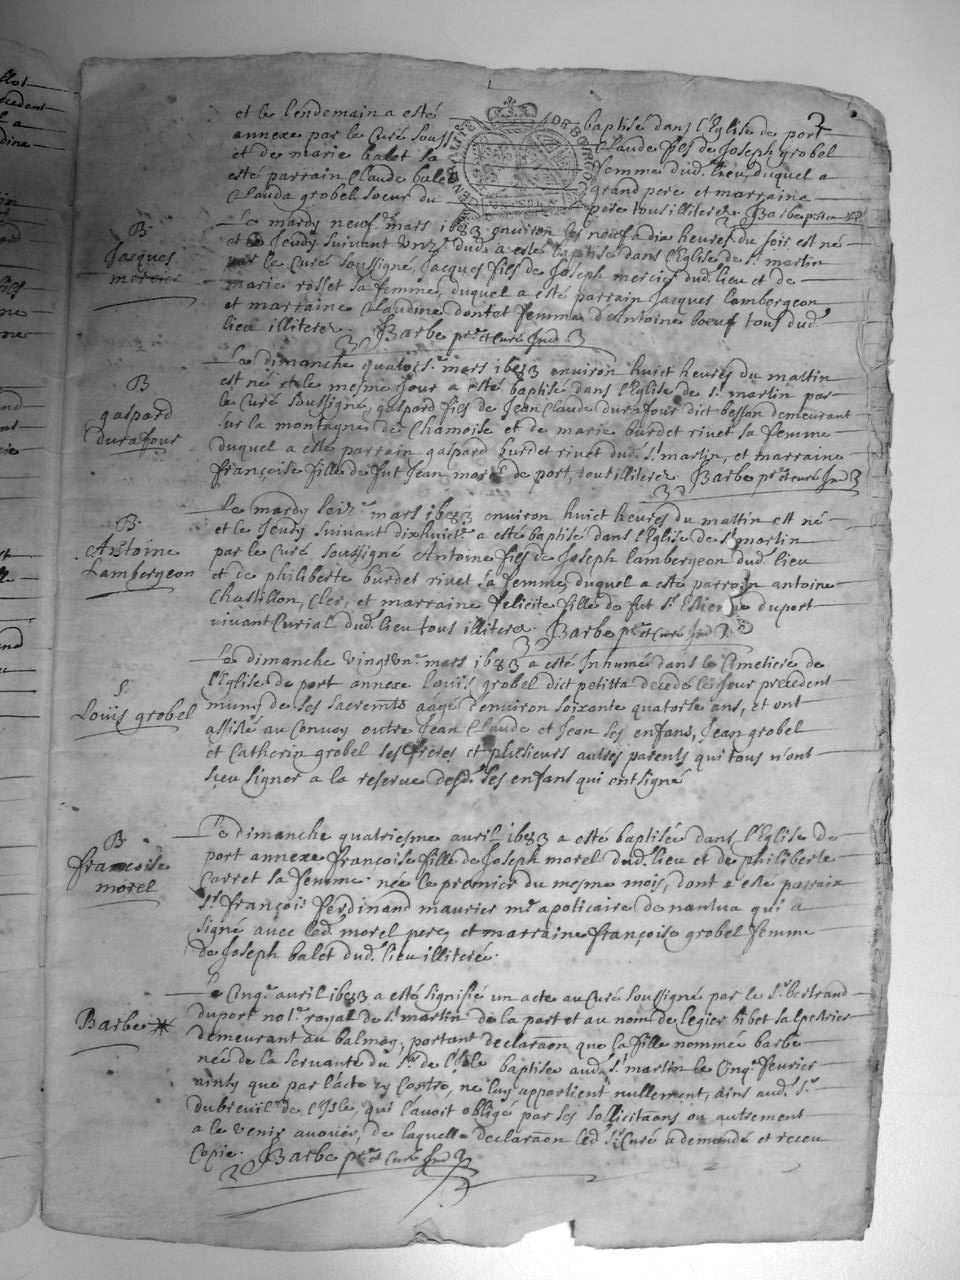 3
et le lendemain a esté baptisé dans l'Eglise de port
annexe par le Curé souss Claude fils de Joseph grobel
et de marie balet sa femme dud. lieu, duquel a
esté parrain Claude balet grand pere et marraine
Clauda grobel soeur du pere tous illiterez. Barbe
Le mardy neuf.e mars 1683 environ les neuf a dix heures du soir est né
B
Jacques
mercier
et le Jeudy suivant unz.e dud. a esté baptisé dans l'Eglise de st. martin
par le Curé soussigné, Jacques fils de Joseph mercier dud. lieu et de
marie rosset sa femme, duquel a esté parrain Jacques Lambergeon
et marraine Claudine dontet femme d'Antoine boeuf tous dud.
lieu illiterez. Barbe p.re et Curé Ind
Le dimanche quatorz.e mars 1683 environ huict heures du mattin
B
gaspard
durafour
est né et le mesme jour a esté baptisé dans l'Eglise de st. martin par
le Curé soussigné, gaspard fils de Jean Claude durafour dict bessan demeurant
sur la montagne de Chamoise et de marie burdet rivet sa femme
duquel a esté parrain gaspard burdet rivet dud. st. martin, et marraine
françoise fille de fut Jean morel de port, tous illiterez Barbe p.re et curé Ind
Le mardy seiz.e mars 1683 environ huict heures du mattin est né
B
Antoine
Lambergeon
et le Jeudy suivant dixhuict.e a esté baptisé dans l'Eglise de st. martin
par le Curé soussigné Antoine fils de Joseph lambergeon dud. lieu
et de philiberte burdet rivet sa femme duquel a esté parrain antoine
Chastillon, Cler, et marraine felicite fille de fut st. duport
vivant Curial dud. lieu tous illiterez. Barbe p.re et Curé Ind
Le dimanche vingtun.e mars 1683 a esté Inhumé dans le Cimetiere de
S.
Loüis grobel
l'Eglise de port annexe Louis grobel dict petitta decedé le jour precedent
muny de ses sacremts aagé d'environ soixante quatorze ans, et ont
assisté au Convoy outre Jean Claude et Jean ses enfans, Jean grobel
et Catherin grobel ses freres et plusieurs autres parents qui tous n'ont
sçeu signer a la reserve desd. ses enfans qui ont signé
Le dimanche quatriesme avril 1683 a esté baptisée dans l'Eglise de
B
francoise
morel
port annexe francoise fille de Joseph morel dud. lieu et de philiberte
Carret sa femme née le premier du mesme mois, dont a esté parrain
st. françois ferdinand maurier m.e apoticaire de nantua qui a
signé avec led. morel pere, et marraine françoise grobel femme
de Joseph balet dud. lieu illiterée.
Le Cinq.e avril 1683 a esté signifié un acte au Curé soussigné par le st. bertrand
Barbe *
duport not.e royal de st. martin de la part et au nom de legier bibet salpestrier
demeurant au balmay, portant declaraon que la fille nommée barbe
née de la servante du sr. de l'Isle baptisée aud. st. martin le Cinq.e fevrier
ainsy que par l'acte cy Contre, ne luy appartient nullement, ains aud. sr.
dubreuil de l'Isle, qui l'avoit obligé par ses sollicitaons ou autrement
a le venir avouër, de laquelle declaraon led. sr. Curé a demandé et receu
Copie. Barbe p.re et Curé Ind